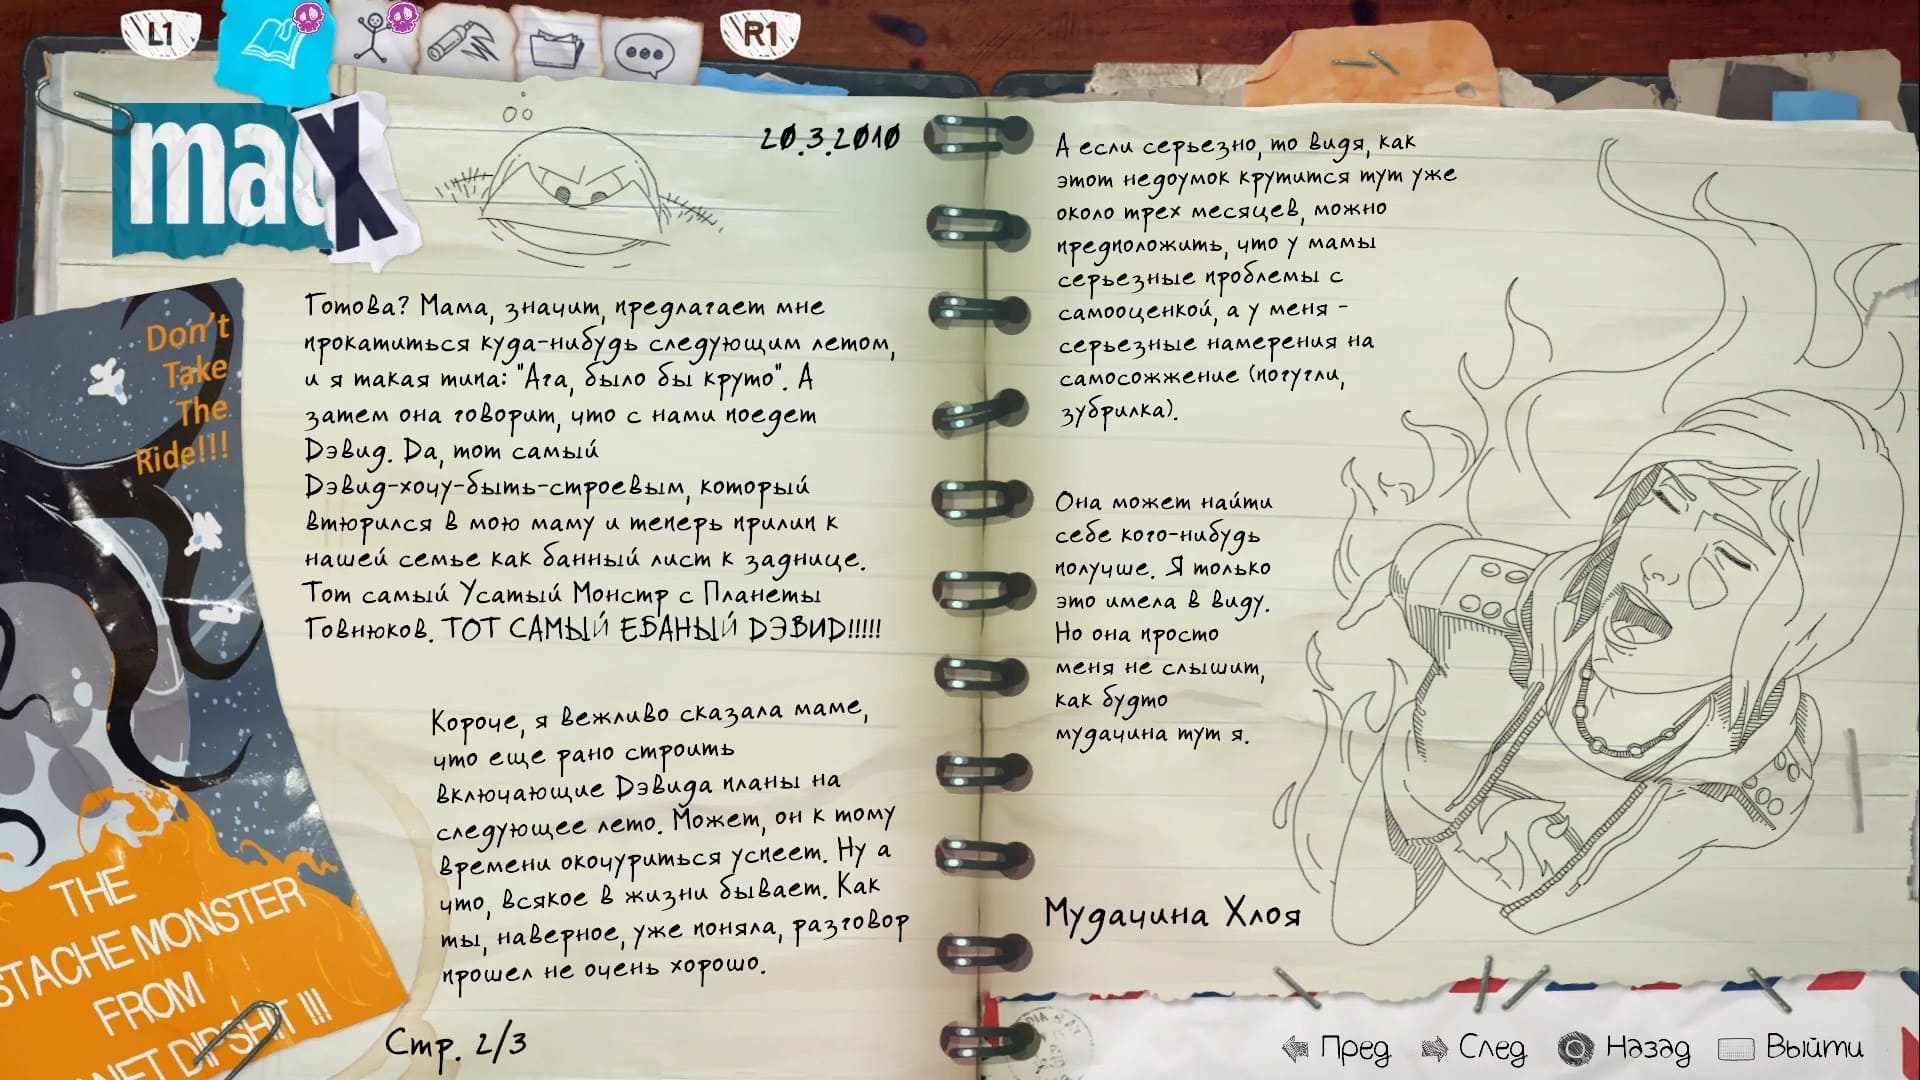 L1
R1
max
20.3.2010
Don't
Take
The
Ride!!!
Готова? Мама, значит, предлагает мне
прокатиться куда-нибудь следующим летом,
и я такая типа: "Ага, было бы круто". А
затем она говорит, что с нами поедет
Дэвид. Да, тот самый
Дэвид-хочу-быть-строевым, который
втюрился в мою маму и теперь прилип к
нашей семье как банный лист к заднице.
Тот самый Усатый Монстр с Планеты
Говнюков. ТОТ САМЫЙ ЕБАНЫЙ ДЭВИД!!!!!
Короче, я вежливо сказала маме,
что еще рано строить
включающие Дэвида планы на
следующее лето. Может, он к тому
времени окочуриться успеет. Ну а
что, всякое в жизни бывает. Как
ты, наверное, уже поняла, разговор
прошел не очень хорошо.
THE
STACHE MONSTER
FROM
NET DIPSHIT !!!
Стр. 2/3
А если серьезно, то видя, как
этот недоумок крутится тут уже
около трех месяцев, можно
предположить, что у мамы
серьезные проблемы с
самооценкой, а у меня -
серьезные намерения на
самосожжение (погугли,
зубрилка).
Она может найти
себе кого-нибудь
получше. Я только
это имела в виду.
Но она просто
меня не слышит,
как будто
мудачина тут я.
Мудачина Хлоя
Пред
След
Назад
Выйти